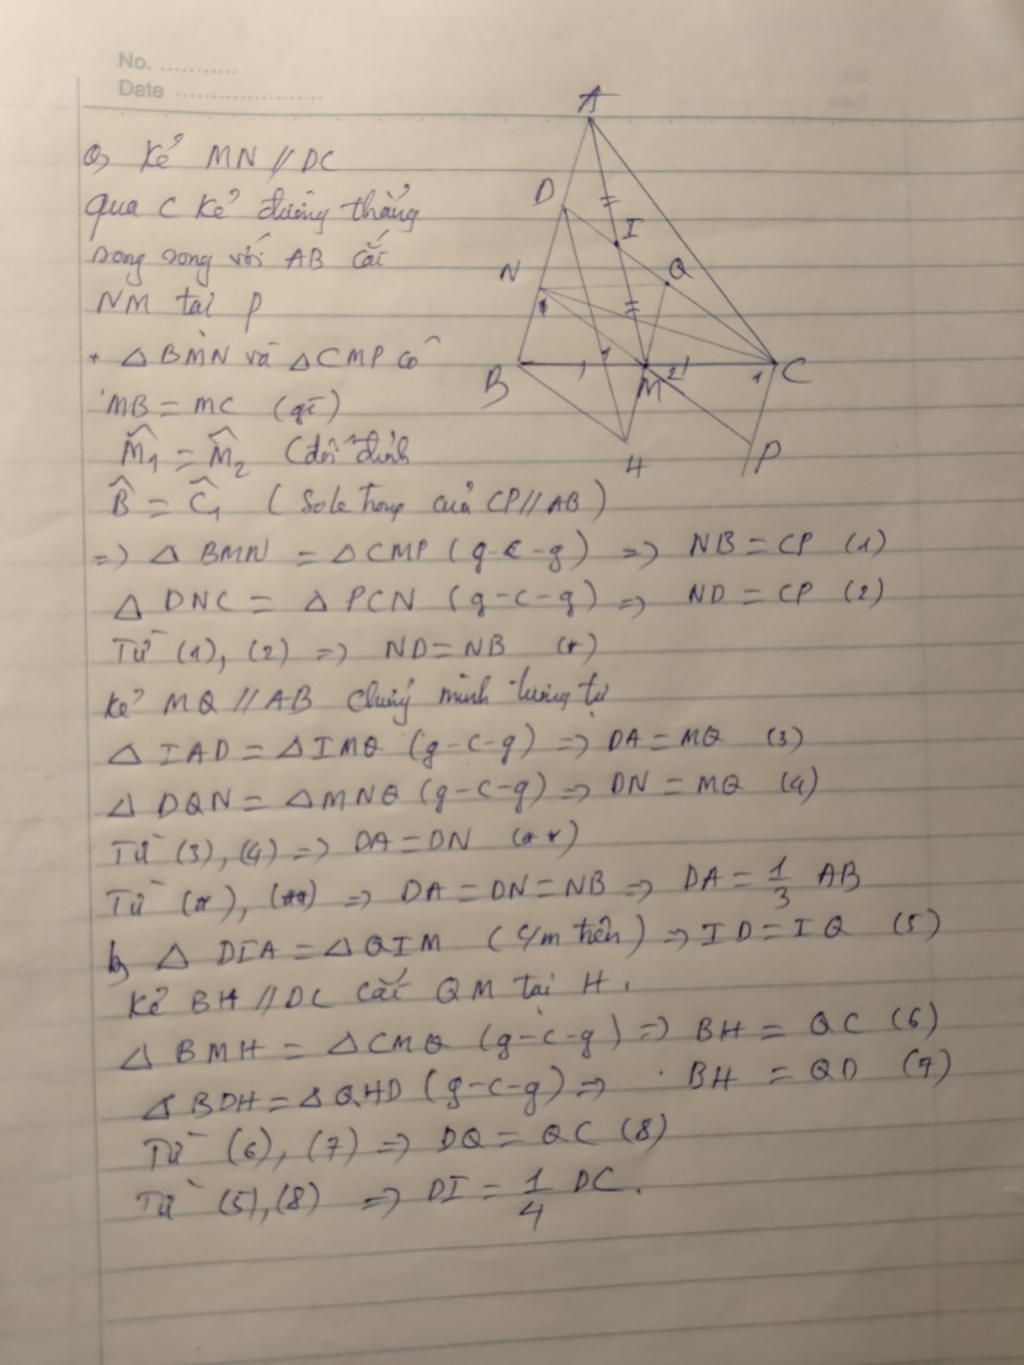 No. ...........
Date ........................
a, Kẻ MN // DC
qua C kẻ đường thẳng
song song với AB cắt
NM tại P
+ △BMN và △CMP có
MB = MC (gt)
M̂₁ = M̂₂ (đối đỉnh
B̂ = Ĉ₁ ( Sole trong của CP // AB )
=> △ BMN = △CMP ( g-c-g ) => NB = CP (1)
△ DNC = △ PCN (g-c-g) => ND = CP (2)
Từ (1), (2) => ND = NB (*)
Kẻ MQ // AB chứng minh tương tự
△ IAD = △IMQ (g-c-g) => DA = MQ (3)
△ DQN = △MNQ (g-c-g) => DN = MQ (4)
Từ (3), (4) => DA = DN (**)
Từ (*), (**) => DA = DN = NB => DA = 1/3 AB
b, △ DIA = △QIM ( c/m trên ) => ID = IQ (5)
Kẻ BH // DC cắt QM tại H.
△ BMH = △CMQ (g-c-g) => BH = QC (6)
△ BDH = △QHD (g-c-g) => BH = QD (7)
Từ (6), (7) => DQ = QC (8)
Từ (5), (8) => DI = 1/4 DC.
A
D
I
N
Q
1
B
1
M
2
1
C
H
P